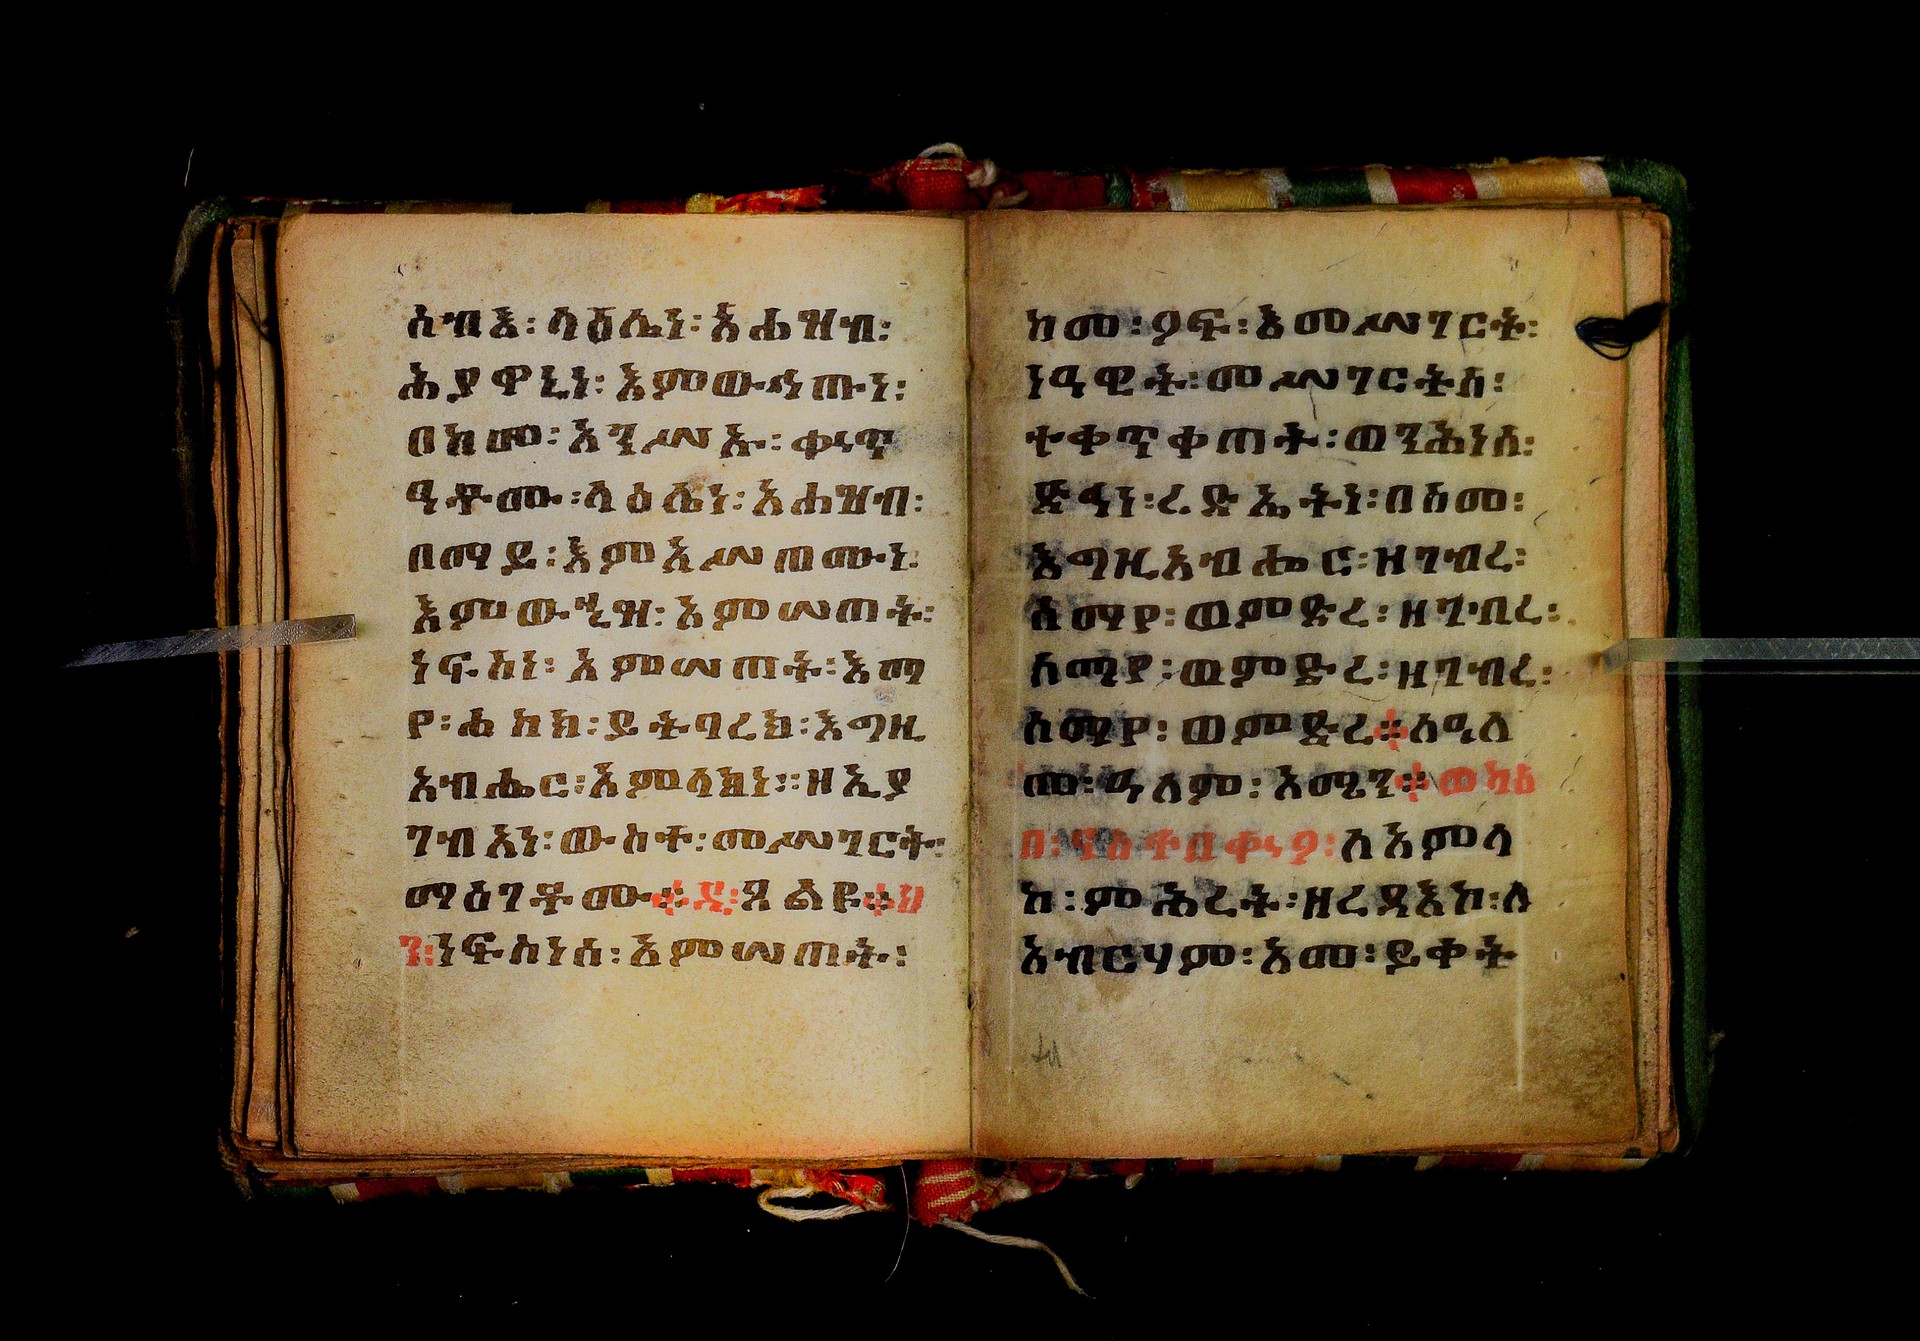 ሰብእ፡ ላዕሌነ፡ አሕዛብ፡
ሕያዋኒነ፡ እምውኅጡነ፡
በከመ፡ አንሥኡ፡ ቍጥ
ዓቶሙ፡ ላዕሌነ፡ አሐዝብ፡
በማይ፡ እምአሥጠሙነ፡
እምውኂዝ፡ አምሠጠት፡
ነፍስነ፡ አምሠጠት፡ እማ
የ፡ ሐከክ፡ ይትባረክ፡ እግዚ
አብሔር፡ አምላክነ፡፡ ዘኢያ
ግብአነ፡ ውስተ፡ መሥገርት፡
ማዕገቶሙ፨ ዲ፡ ጸልዩ፨ ህ
ን፡ ነፍስነሰ፡ አምሠጠት፡
ከመ፡ ዖፍ፡ እመሥገርት፡
ነዓዊት፡ መሥገርትሰ፡
ተቀጥቀጠት፡ ወንሕነሰ፡
ድኅነ፡ ረድኤትነ፡ በስመ፡
እግዚአብሔር፡ ዘገብረ፡
ሰማየ፡ ወምድረ፡ ዘገብረ፡
ሰማየ፡ ወምድረ፡ ዘገብረ፡
ሰማየ፡ ወምድረ፨ ለዓለ
መ፡ ዓለም፡ አሜን፨ ወካዕ
በ፡ ናስተበቍዖ፡ ለአምላ
ከ፡ ምሕረት፡ ዘረዳእኮ፡ ለ
አብርሃም፡ አመ፡ ይቀት